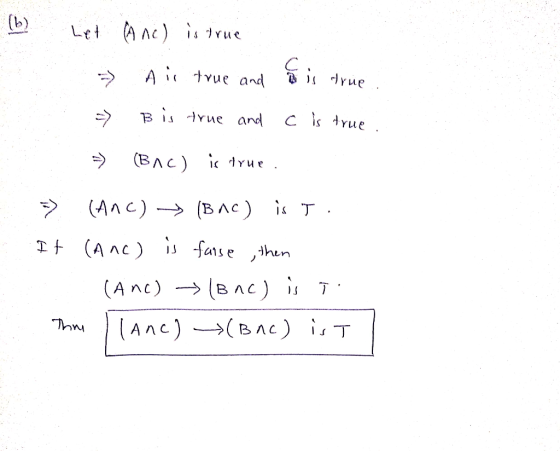 (b) Let (A∧C) is true
⇒ A is true and C is true.
⇒ B is true and C is true.
⇒ (B∧C) is true.
⇒ (A∧C) → (B∧C) is T.
If (A∧C) is false, then
(A∧C) → (B∧C) is T.
Thus (A∧C) → (B∧C) is T